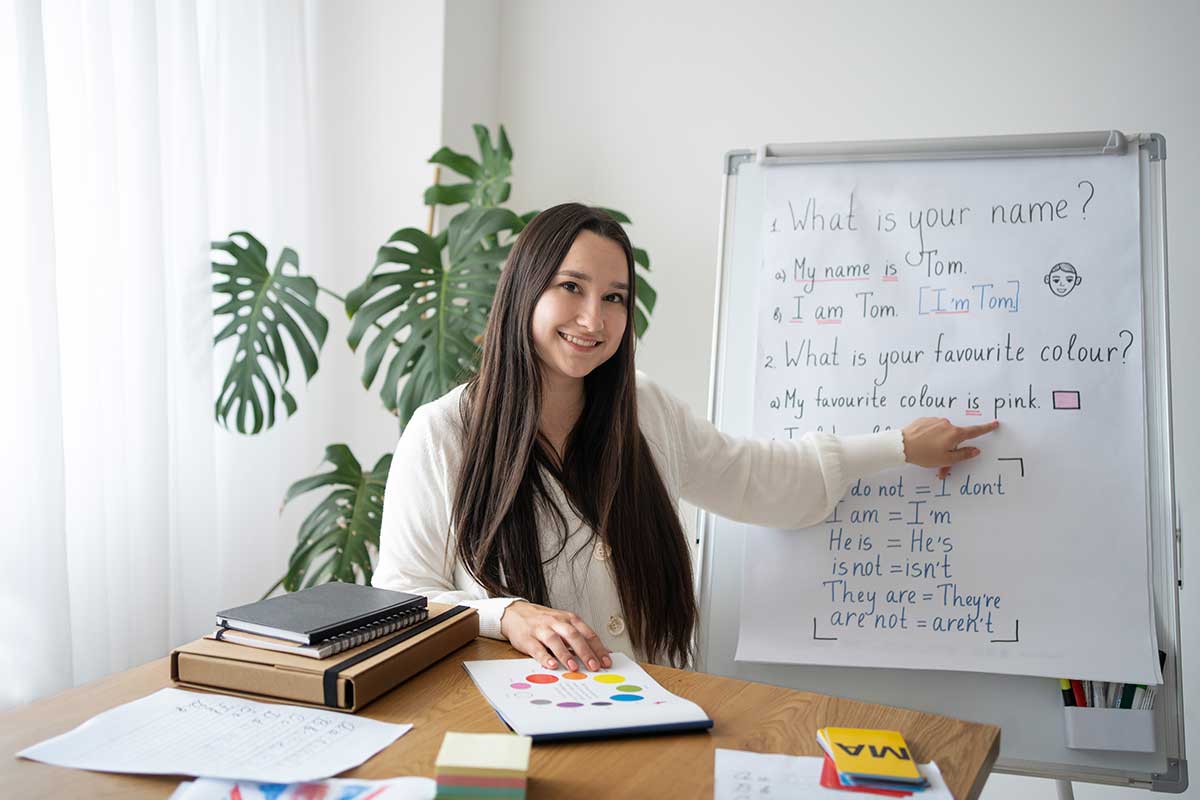 1. What is your name?
a) My name is Tom.
b) I am Tom. [I'm Tom]
2. What is your favourite colour?
a) My favourite colour is pink.
I
do not = I don't
I am = I'm
He is = He's
is not = isn't
They are = They're
are not = aren't
MA